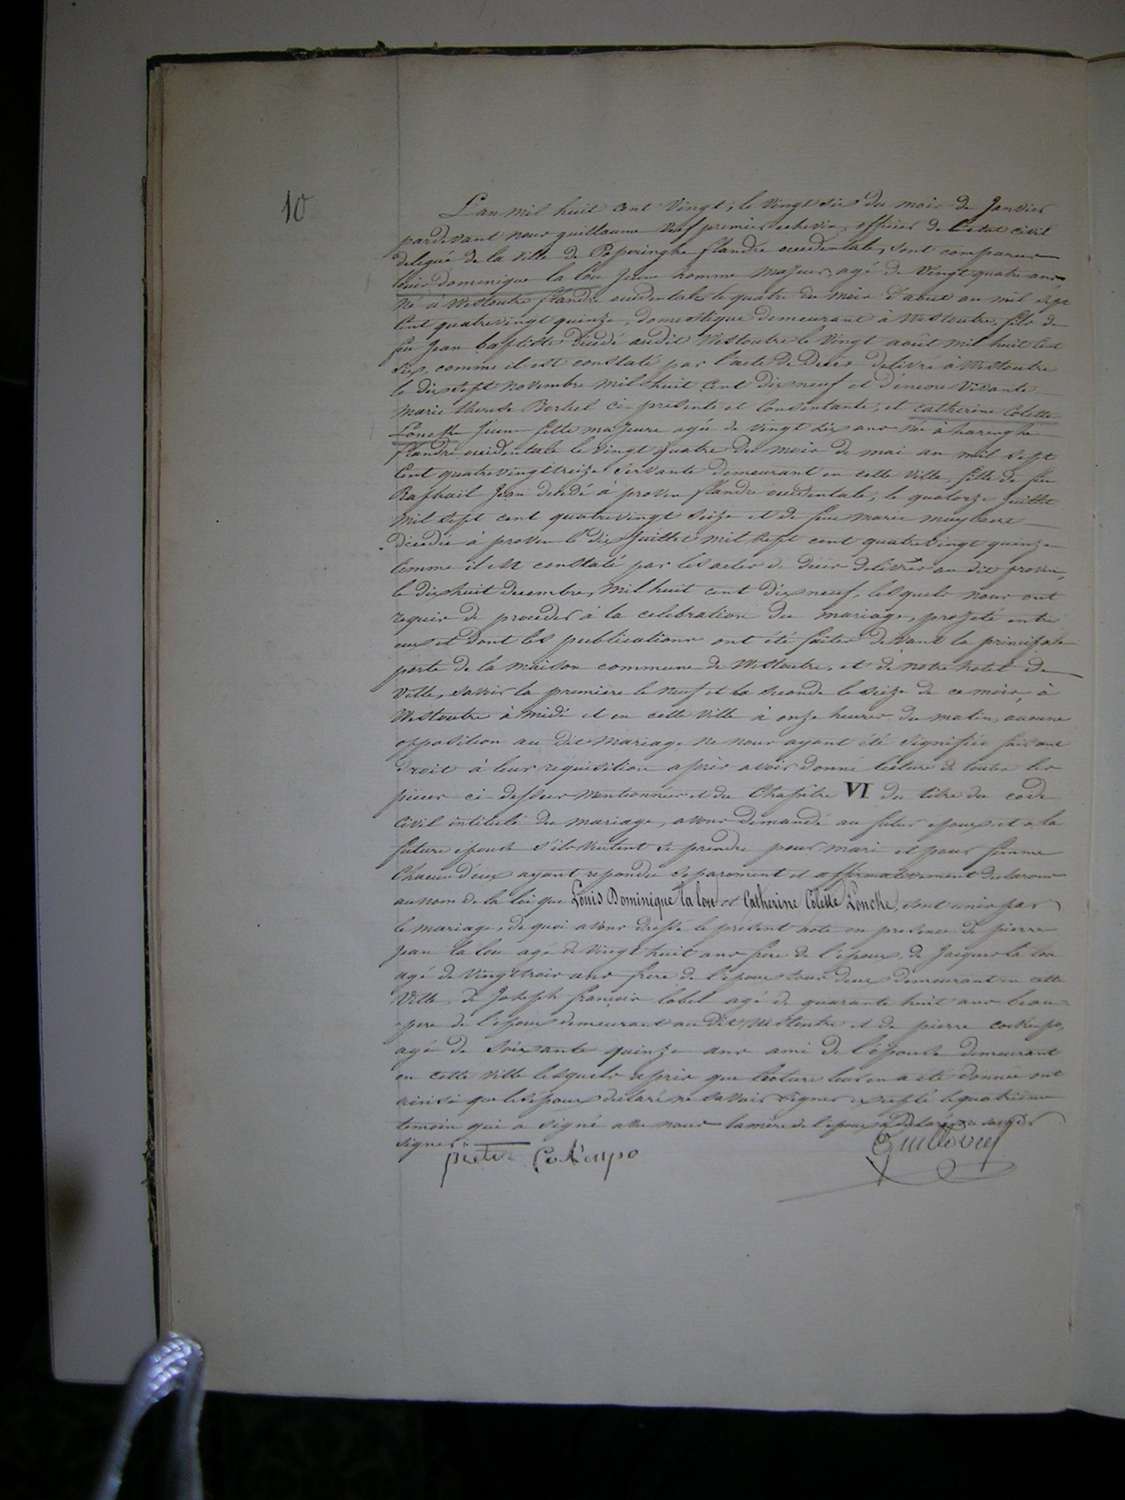 10
L'an mil huit cent vingt, le vingt six du mois de Janvier
pardevant nous guillaume premier echevin, officier de l'etat civil
delegué de la ville de Poperinghe flandre occidentale, sont comparus
louis dominique la lou jeune homme majeur, agé de vingt quatre ans,
né à Westoutre flandre occidentale le quatre du mois d'aout an mil sept
cent quatrevingt quinze, domestique demeurant à Westoutre, fils de
feu Jean baptiste decedé audit Westoutre le vingt août mil huit cent
six, comme il est constaté par l'acte de Deces delivré à Westoutre
le dix sept novembre mil huit cent dix neuf et d'encore vivante
marie therese ci presente et consentante; et catherine Colette
Loncke jeune fille majeure agée de vingt six ans née à haringhe
flandre occidentale le vingt quatre du mois de mai an mil sept
cent quatrevingt treize servante demeurant en cette ville, fille de feu
Raphail Jean decedé à proven flandre occidentale, le quatorze juillet
mil sept cent quatrevingt seize et de feue marie
décedée à proven le dix juillet mil sept cent quatrevingt quinze
comme il est constaté par les actes de décès delivrés au dit proven,
le dix huit decembre, mil huit cent dix neuf, lesquels nous ont
requis de proceder à la celebration du mariage, projeté entre
eux et dont les publications ont été faites devant la principale
porte de la maison commune de Westoutre, et de notre hotel de
ville, savoir la premiere le neuf et la seconde le seize de ce mois, à
Westoutre à midi et en cette ville à onze heures du matin, aucune
opposition au dit mariage ne nous ayant été signifiée faisant
droit à leur requisition après avoir donné lecture de toutes les
pieces ci-dessus mentionnées et du Chapitre VI du titre du code
civil intitulé du mariage, avons demandé au futur epoux et a la
future epouse s'ils veulent se prendre pour mari et pour femme
chacun d'eux ayant repondu separement et affirmativement declarons
au nom de la loi que Louis Dominique la lou et Catherine Colette Loncke, sont unis par
le mariage, de quoi avons dressé le présent acte en presence de pierre
jean la lou agé de vingt huit ans frere de l'epoux, de Jacques la lou
agé de vingt trois ans frere de l'epoux tous deux demeurant en cette
ville, de Joseph françois label agé de quarante huit ans beau-
pere de l'epoux demeurant au dit Westoutre et de pierre
agé de soixante quinze ans ami de l'épouse demeurant
en cette ville lesquels après que lecture leur en a été donnée ont
ainsi que les epoux declaré ne savoir signer excepté le quatrieme
temoin qui a signé avec nous la mère de l'epoux a declaré ne savoir
signer